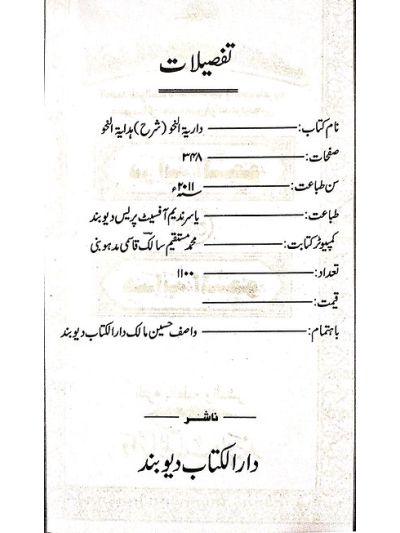 تفصیلات
نام کتاب: داریۃ النحو (شرح) ہدایۃ النحو
صفحات: ۳۴۸
سن طباعت: ۲۰۱۱ء
طباعت: یاسر ندیم آفسیٹ پریس دیوبند
کمپیوٹر کتابت: محمد مستقیم سالک قاسمی مدہوبنی
تعداد: ۱۱۰۰
قیمت:
باہتمام: واصف حسین مالک دارالکتاب دیوبند
ناشر
دارالکتاب دیوبند